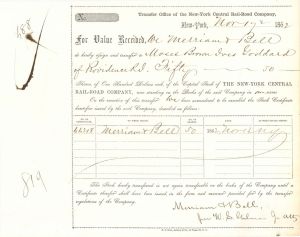 Transfer Office of the New-York Central Rail-Road Company,
New-York, Nov 17 1862
No.
For Value Received, We Merriam & Bell
do hereby assign and transfer to Goddard
of Providence R.I. Fifty 50
Shares, of One Hundred Dollars each, of the Capital Stock of THE NEW-YORK CENTRAL
RAIL-ROAD COMPANY, now standing in the Books of the said Company in our name
On the execution of this transfer We have surrendered to be cancelled the Stock Certificate
heretofore issued by the said Company, described as follows:
Merriam & Bell 50 1862
The Stock hereby transferred is not again transferable on the books of the Company until a
Certificate therefor shall have been issued in the form and manner provided for by the transfer
regulations of the Company.
Merriam & Bell
819